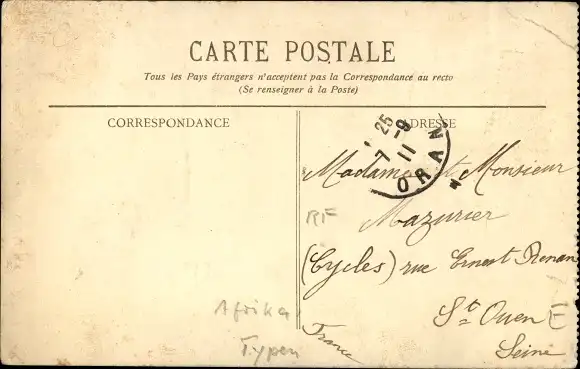 CARTE POSTALE
Tous les Pays étrangers n'acceptent pas la Correspondance au recto
(Se renseigner à la Poste)
CORRESPONDANCE
ADRESSE
25
7 -9
11
ORAN
Madame et Monsieur
Mazurier
(Cycles) rue Ernest Renan
St Ouen
Seine
France
RF
Afrika
Typen
E